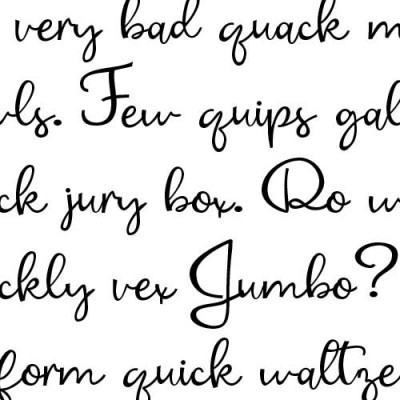 very bad quack m
wls. Few quips gal
ck jury box. Do w
ckly vex Jumbo?
form quick waltze